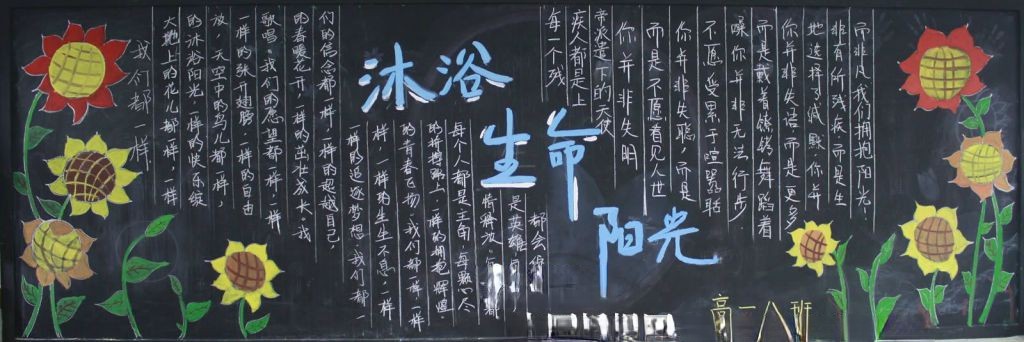 沐浴
生命
阳光
我们都一样
大地上的花儿都一样,一样
的沐浴阳光,一样的快乐绽
放,天空中的鸟儿都一样,
一样的张开翅膀,一样的自由
歌唱。我们的愿望都一样,一样
的春暖花开,一样的茁壮成长。我
们的信念都一样,一样的超越自己,
一样的追逐梦想,我们都一
样,一样的生生不息,一样
的青春飞扬,我们都一样,一样
上,一样的拥抱辉煌.
每个人都是主角,每颗心尽
情释放
是英雄
都会
每一个残
疾人都是上
常派遣下的天使
你并非失明
而是不愿看见人世
你并非失聪,而是
不愿受累于喧嚣聒
噪你并非无法行步
而是戴着镣铐舞蹈着
你并非失语,而是更多
地选择了缄默,你并
非有所残疾而是生
而非凡我们拥抱阳光,
高一八班